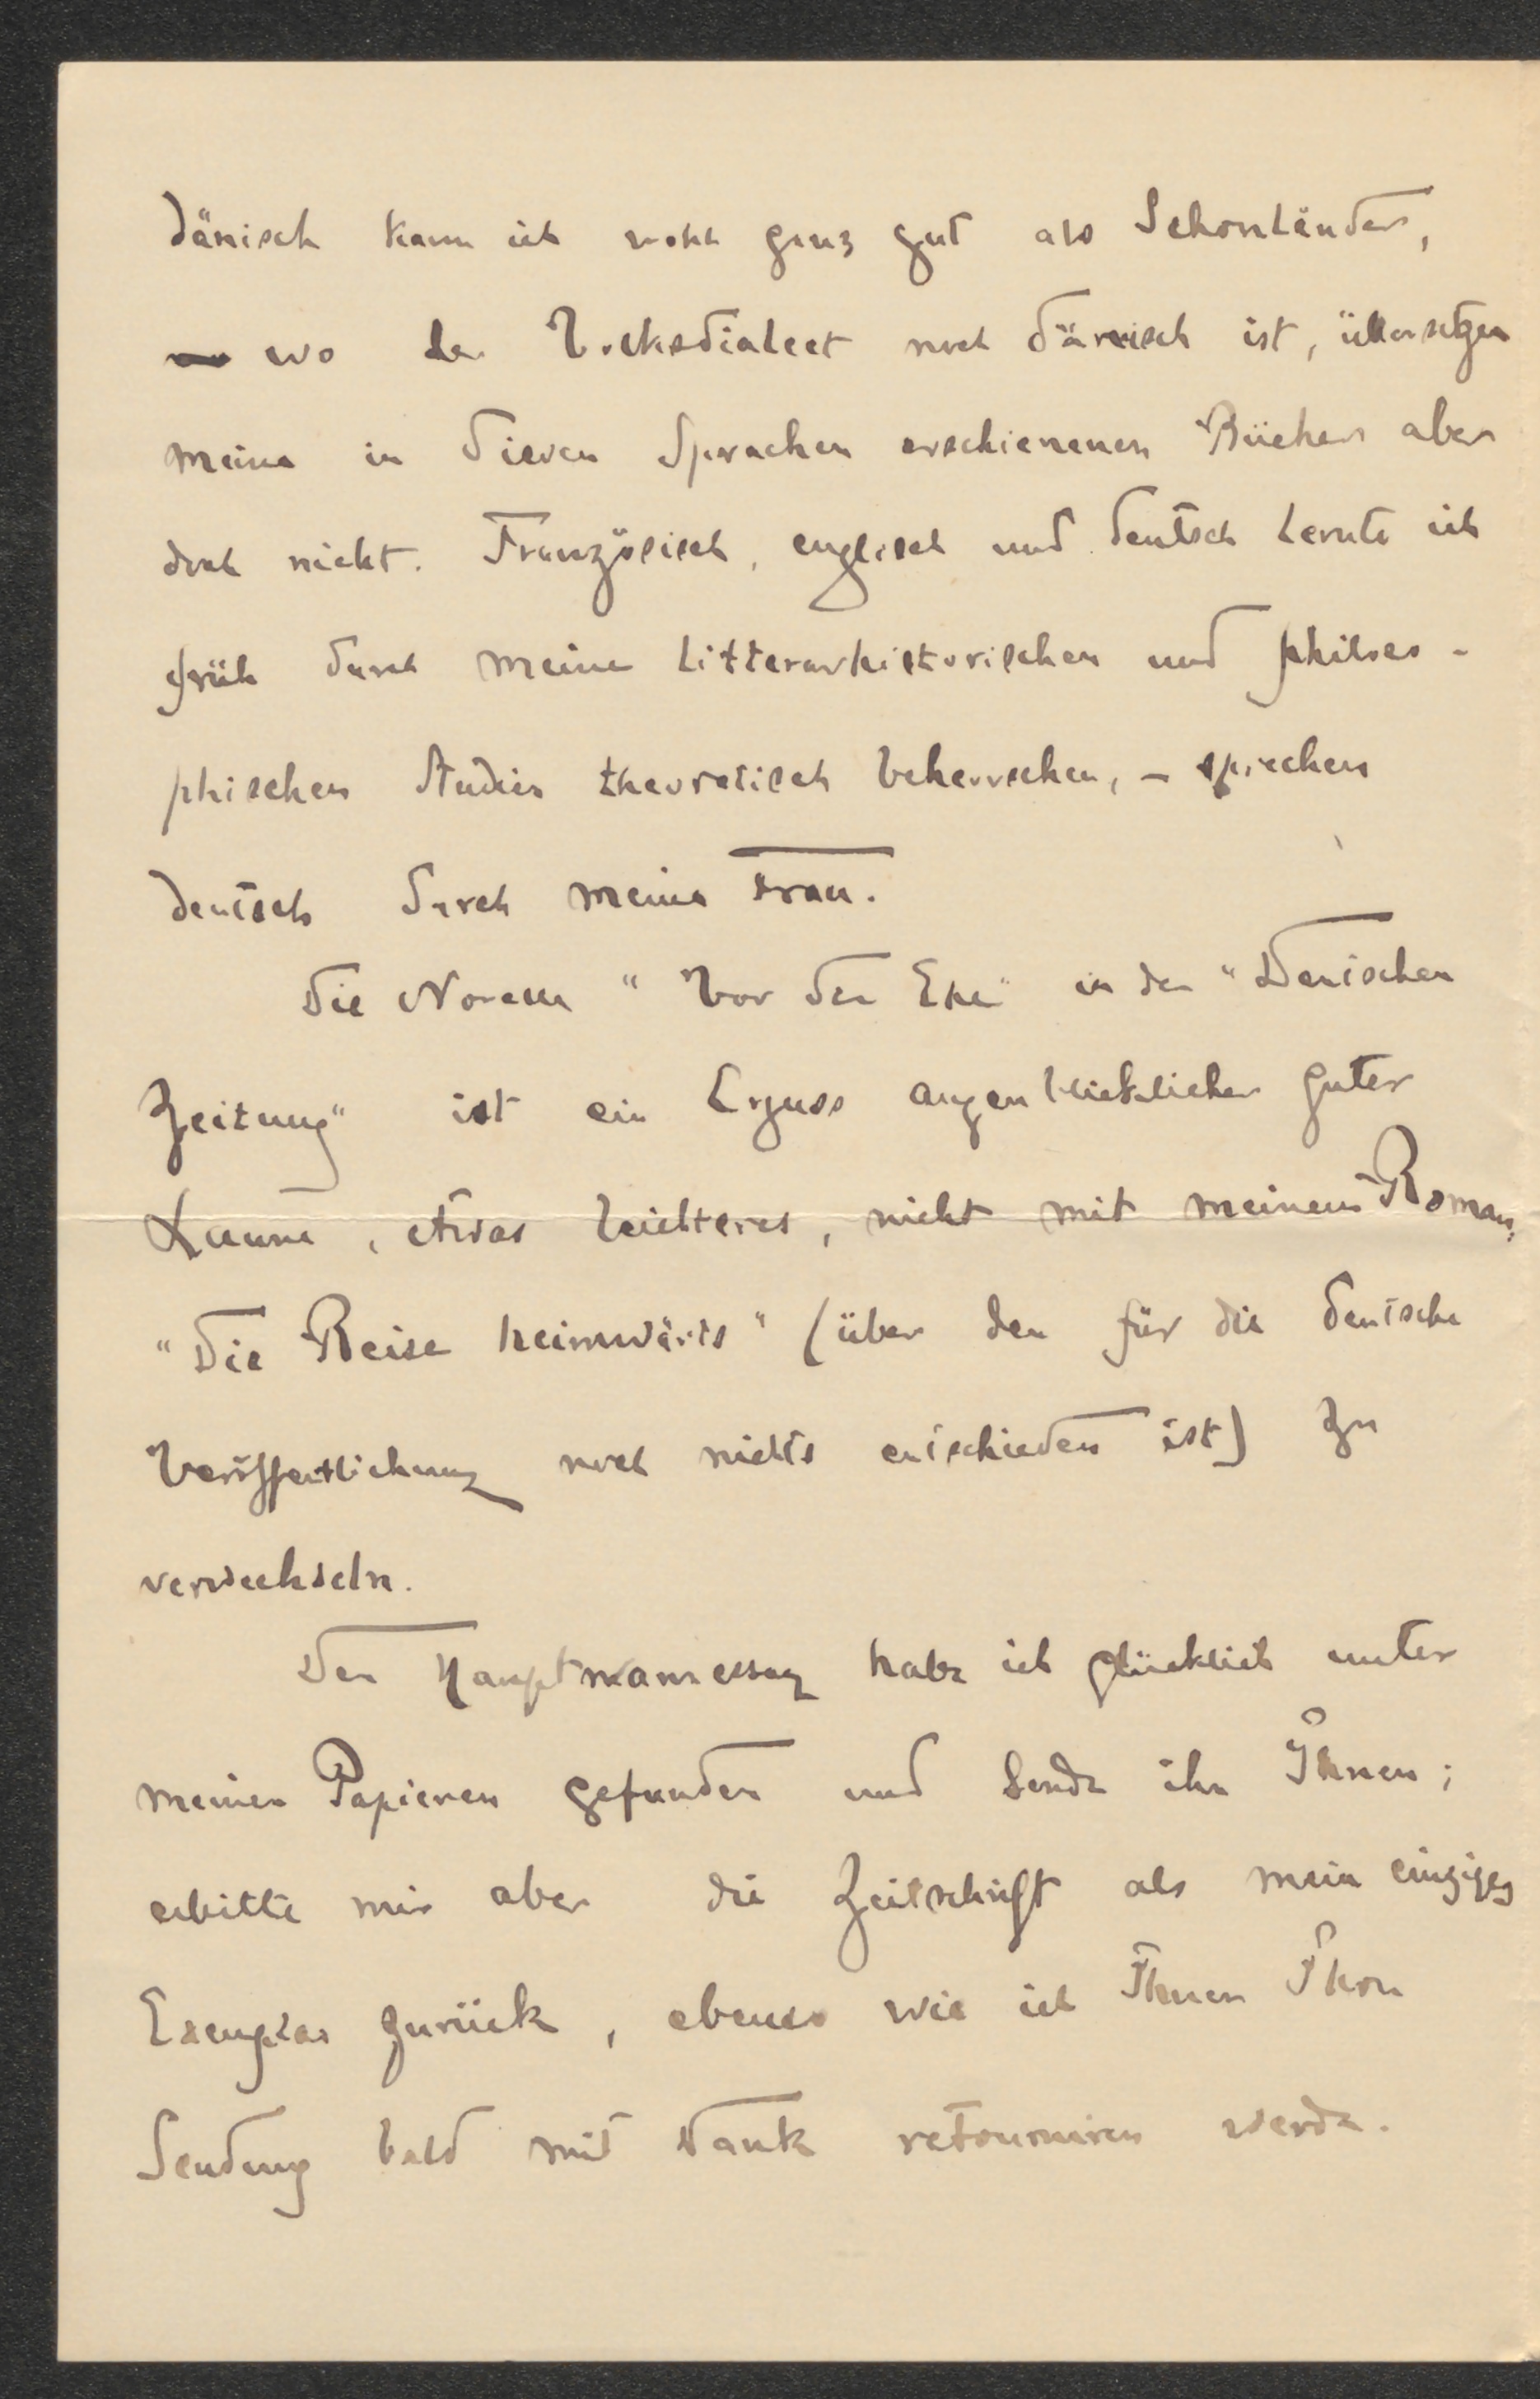 dänisch kann ich wohl ganz gut als Schonländer,
wo der Volksdialect noch dänisch ist, übersetzen
meine in diesen Sprachen erschienenen Bücher aber
doch nicht. Französisch, englisch und deutsch lernte ich
früh durch meine litterarhistorischen und philoso-
phischen Studien theoretisch beherrschen, – sprechen
deutsch durch meine Frau.
Die Novelle "Vor der Ehe" in der "Deutschen
Zeitung" ist ein Erguss augenblicklicher guter
Laune, etwas leichteres, nicht mit meinem Roman,
"Die Reise heimwärts" (über den für die deutsche
Veröffentlichung noch nichts entschieden ist) zu
verwechseln.
Den Hauptmannessay habe ich glücklich unter
meinen Papieren gefunden und sende ihn Ihnen;
erbitte mir aber die Zeitschrift als mein einziges
Exemplar zurück, ebenso wie ich Ihnen Ihre
Sendung bald mit Dank retourniren werde.